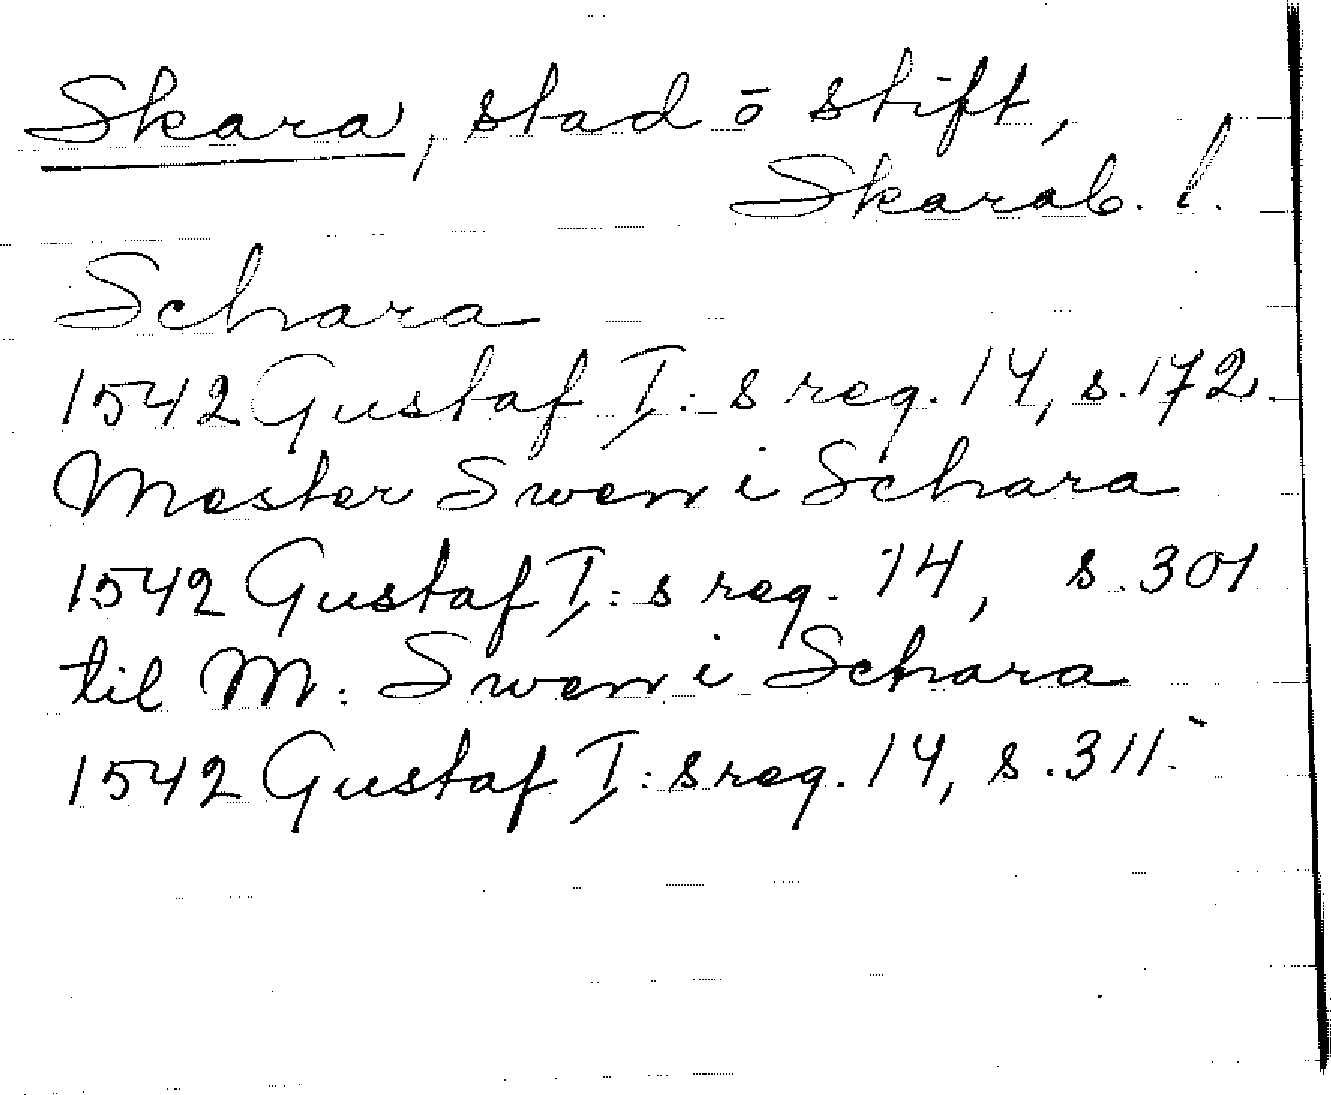 Skara, stad ō stift,
Skarab. l.
Schara
1542 Gustaf I:s reg. 14, s. 172.
Mester Swen i Schara
1542 Gustaf I:s reg. 14, s. 301
til M: Swen i Schara
1542 Gustaf I:s reg. 14, s. 311.